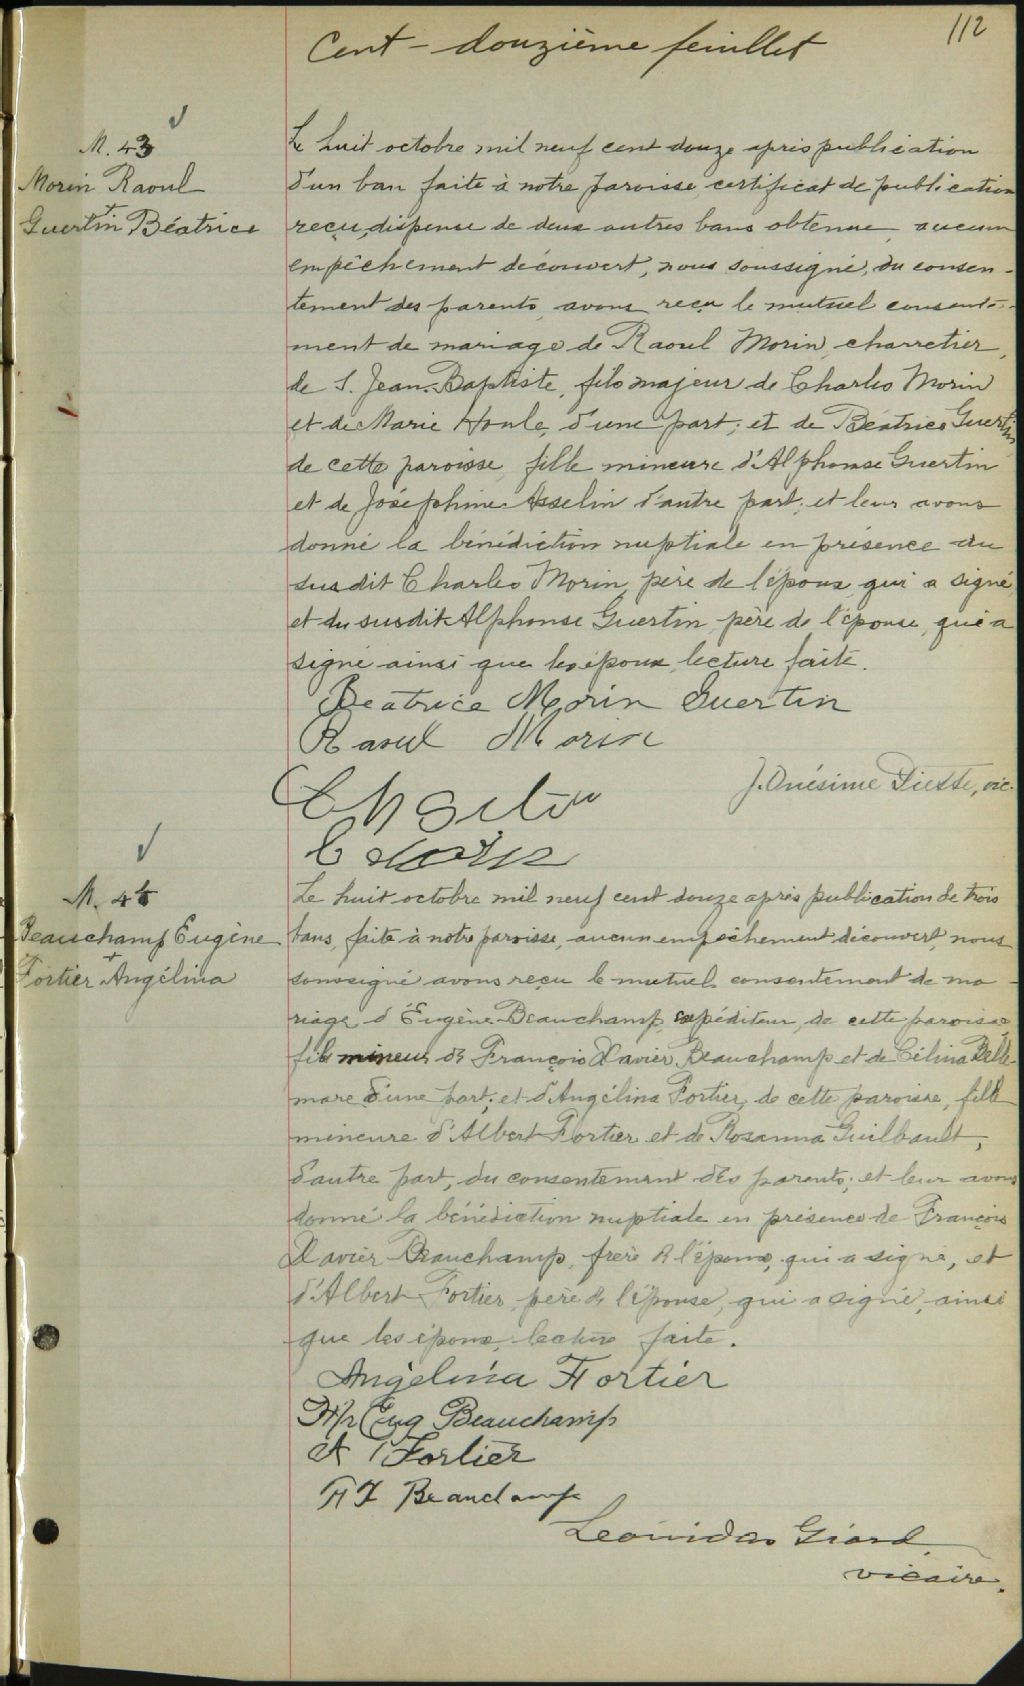 112
Cent - douzième feuillet
M. 43
Morin Raoul
+
Guertin Béatrice
Le huit octobre mil neuf cent douze après publication
d'un ban faite à notre paroisse, certificat de publication
reçu, dispense de deux autres bans obtenue, aucun
empêchement découvert, nous soussigné, du consen-
tement des parents, avons reçu le mutuel consente-
ment de mariage de Raoul Morin, charretier,
de S. Jean-Baptiste, fils majeur de Charles Morin
et de Marie Houle, d'une part; et de Béatrice Guertin
de cette paroisse, fille mineure d'Alphonse Guertin
et de Joséphine Asselin d'autre part; et leur avons
donné la bénédiction nuptiale en présence du
susdit Charles Morin, père de l'époux, qui a signé,
et du susdit Alphonse Guertin, père de l'épouse, qui a
signé ainsi que les époux, lecture faite.
Beatrice Morin Guertin
Raoul Morin
J. Onésime Dieste, vic.
M. 44
Beauchamp Eugène
+
Fortier Angélina
Le huit octobre mil neuf cent douze après publication de trois
bans, faite à notre paroisse, aucun empêchement découvert, nous
soussigné avons reçu le mutuel consentement de ma-
riage d'Eugène Beauchamp, expéditeur, de cette paroisse,
fils mineur de François Xavier Beauchamp et de Célina Belle-
mare d'une part; et d'Angélina Fortier, de cette paroisse, fille
mineure d'Albert Fortier et de Rosanna Guilbault,
d'autre part, du consentement des parents; et leur avons
donné la bénédiction nuptiale en présence de François
Xavier Beauchamp, frère de l'époux, qui a signé, et
d'Albert Fortier, père de l'épouse, qui a signé, ainsi
que les époux, lecture faite.
Angélina Fortier
Eug Beauchamp
A Fortier
F X Beauchamp
Leonidas Giard
vicaire.